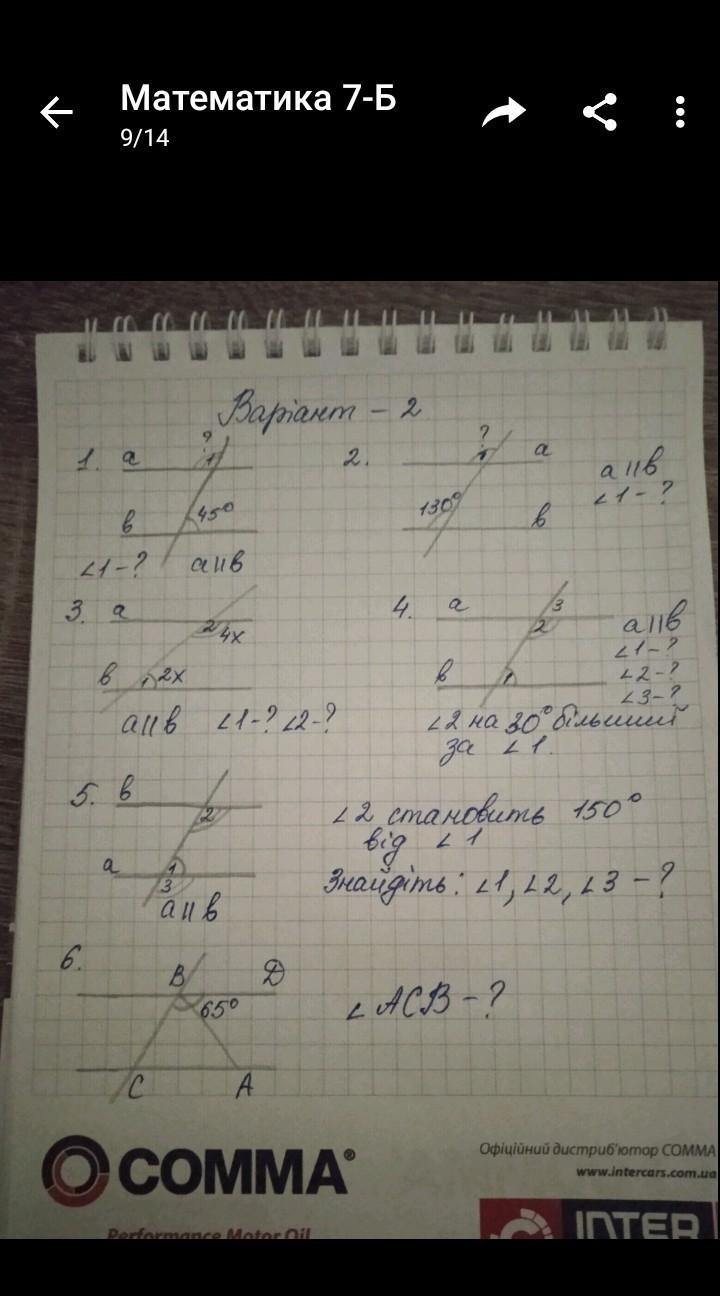 Математика 7-Б
9/14
Варіант - 2
1. a ? 1
b 45°
∠1-? a||b
2. ? 1 a
130° b
a||b
∠1-?
3. a 2 4x
b 1 2x
a||b ∠1-? ∠2-?
4. a 3
2
b 1
a||b
∠1-?
∠2-?
∠3-?
∠2 на 30° більший
за ∠1.
5. b 2
a 1
3
a||b
∠2 становить 150°
від ∠1
Знайдіть: ∠1, ∠2, ∠3 -?
6. B D
65°
C A
∠ACB-?
COMMA®
Performance Motor Oil
Офіційний дистриб'ютор COMMA
www.intercars.com.ua
INTER